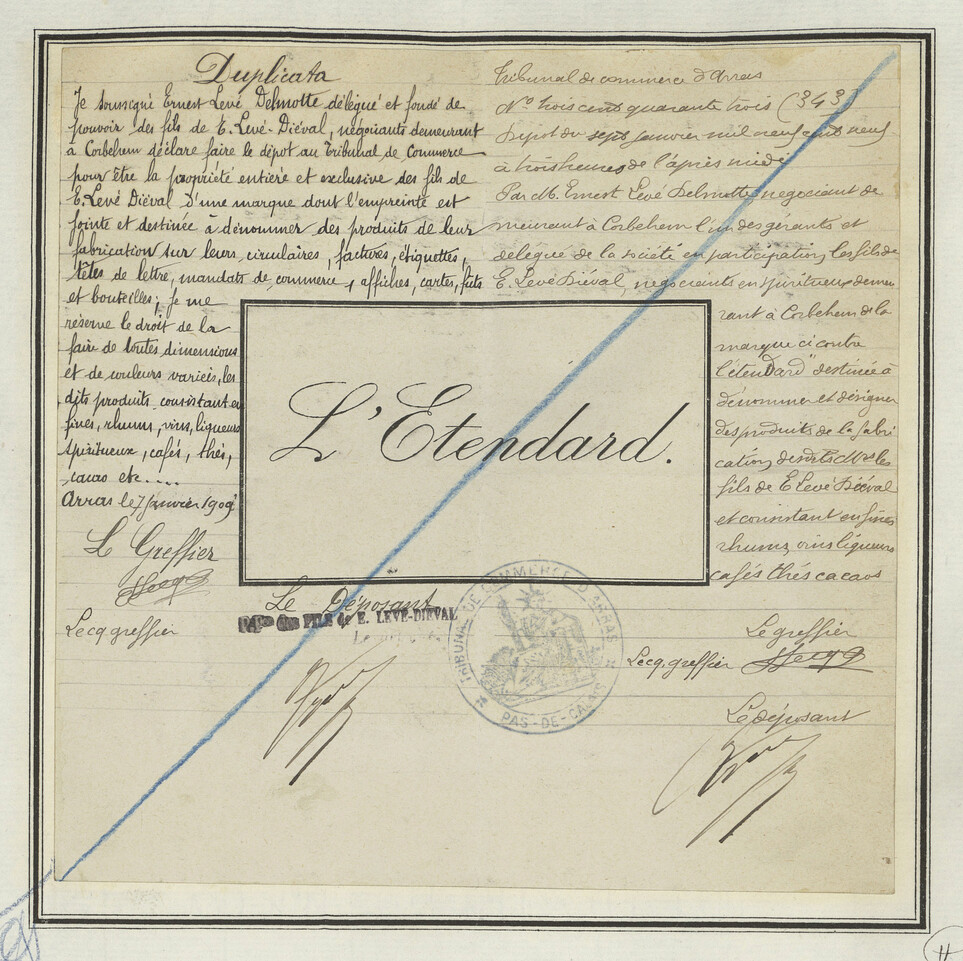 Duplicata
Je soussigné Ernest Levé Delmotte délégué et fondé de
pouvoir des fils de E. Levé-Diéval, négociants demeurant
à Corbehem déclare faire le dépôt au Tribunal de Commerce
pour être la propriété entière et exclusive des fils de
E. Levé Diéval D'une marque dont l'empreinte est
jointe et destinée à dénommer des produits de leur
fabrication sur leurs circulaires, factures, étiquettes,
têtes de lettre, mandats de commerce, affiches, cartes, fûts
et bouteilles; je me
réserve le droit de la
faire de toutes dimensions
et de couleurs variées, les
dits produits consistant en
fines, rhums, vins, liqueurs
spiritueux, cafés, thés,
cacao etc.....
Arras le 7 Janvier 1909
Le Greffier
Lecq greffier
L'Etendard.
Le Déposant
des FILS de E. LEVÉ-DIÉVAL
TRIBUNAL DE COMMERCE D'ARRAS
PAS-DE-CALAIS
Tribunal de commerce d'Arras
No trois cent quarante trois (343)
Dépôt du sept janvier mil neuf cent neuf
à trois heures de l'après midi
Par M. Ernest Levé Delmotte négociant de
meurant à Corbehem l'un des gérants et
délégué de la société en participation, les fils de
E. Levé Diéval, négociants en spiritueux demeu
rant à Corbehem de la
marque ci contre
"l'étendard" destinée à
dénommer et désigner
des produits de la fabri
cation desdits Mrs les
fils de E Levé Diéval
et consistant en fines
rhums, vins liqueurs
cafés thés cacaos
Le greffier
Lecq, greffier
Le déposant